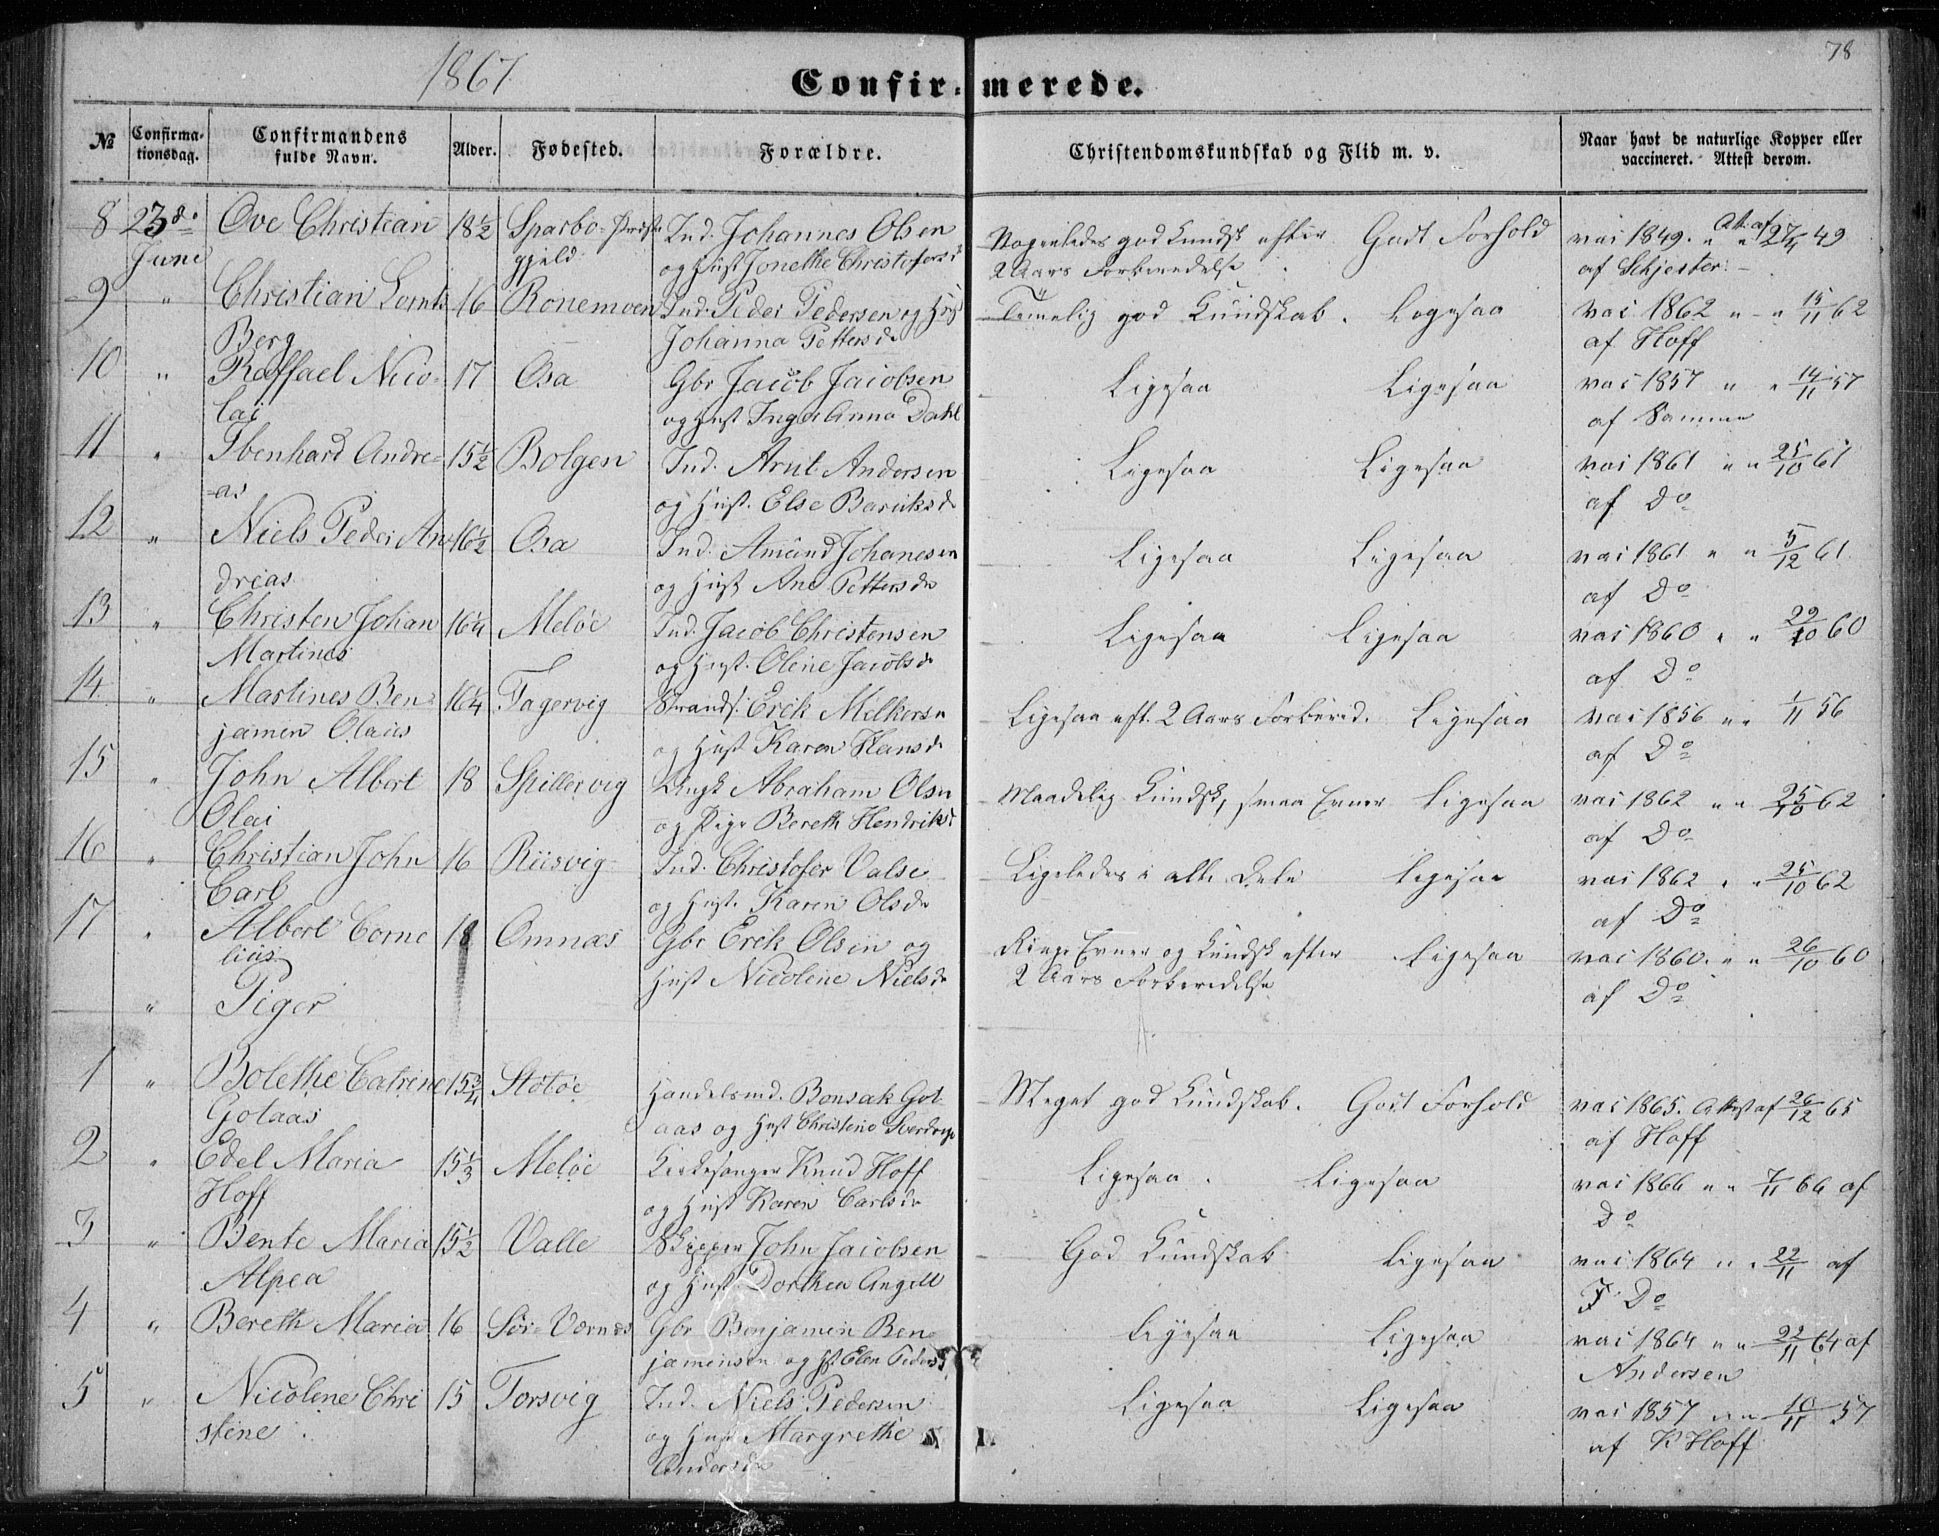 1867
78
Confirmerede.
№ Confirmationsdag. Confirmandens fulde Navn. Alder. Fødested. Forældre. Christendomskundskab og Flid m. v. Naar havt de naturlige Kopper eller vaccineret. Attest derom.
8 23de Juni Ove Christian 18½ Sparbo Præstegjeld Ind. Johannes Olsen Nogenledes god Kundsk efter Godt Forhold vac 1849. " Att. af 27/ 49
og Hust Jonethe Christofersd 2 Aars Forberedelse af Schjester
9 " Christian Lomts 16 Ronemoen Ind. Peder Pedersen og Hust Temelig god Kundskab. Ligesaa vac 1862 " - " 15/11 62
Berg Johanna Pettersd af Hoff
10 " Raffael Nico- 17 Osa Gbr Jacob Jacobsen Ligesaa Ligesaa vac 1857 " " 14/11 57
lai og Hust Inga Anna Dahl af Samme
11 " Ibenhard Andre- 15½ Bolgen Ind. Arnt Andersen Ligesaa Ligesaa vac 1861 " " 25/10 61
=as og Hust. Else Baruksd af Do
12 " Niels Peder An- 16½ Osa Ind. Amund Johanesen Ligesaa Ligesaa vac 1861 " " 5/12 61
dreas og Hust Ane Pettersd af Do
13 " Christen Johan 16¼ Meløe Ind. Jacob Christensen Ligesaa Ligesaa vac 1860 " " 29/10 60
Martines og Hust. Oline Jacobsd af Do
14 " Martines Ben- 16¼ Fagervig Strands. Erik Milkersn Ligesaa eft. 2 Aars Forbered. Ligesaa vac 1856 " " 1/11 56
jamin Olaus og Hust Karen Hansd af Do
15 " John Albert 18 Spillervig Ungk Abraham Olsn Maadelig Kundsk, smaa Evner Ligesaa vac 1862 " " 25/10 62
Olai og Pige Bereth Hendriksd af Do
16 " Christian John 16 Riisvig Ind. Christofer Valse Ligeledes i alle Dele Ligesaa vac 1862 " " 25/10 62
Carl og Hust. Karen Olsd af Do
17 " Albert Corne 18 Omnæs Gbr Erik Olsen og Ringe Evner og Kundsk efter Ligesaa vac 1860. " " 26/10 60
lius Hust Nicoline Nielsd 2 Aars Forberedelse af Do
" Piger
1 " Bolethe Catrine 15¾ Støtøe Handelsmd. Bonsak Got- Meget god Kundskab. Godt Forhold vac 1865. Attest af 26/12 65
Gotaas aas og Hust Christine Sverdrup af Hoff
2 " Edel Maria 15⅓ Meløe Kirkesanger Knud Hoff Ligesaa. Ligesaa vac 1866 " " 7/11 66 af
Hoff og Hust Karen Carlsd Do
3 " Bente Maria 15½ Valle Skipper John Jacobsen God Kundskab Ligesaa vac 1864 " " 22/11 af
Alpea og Hust Dorthea Angell Do
4 " Bereth Maria 16 Sør-Værnæs Gbr Benjamin Ben- Ligesaa Ligesaa vac 1864 " " 22/11 64 af
jamensen og H. Elen Pedersd Andersen
5 " Nicoline Chri 15 Torsvig Ind. Niels Pedersen Ligesaa Ligesaa vac 1857 " " 10/11 57
stine. og Hust Margrethe af K Hoff
Andersd